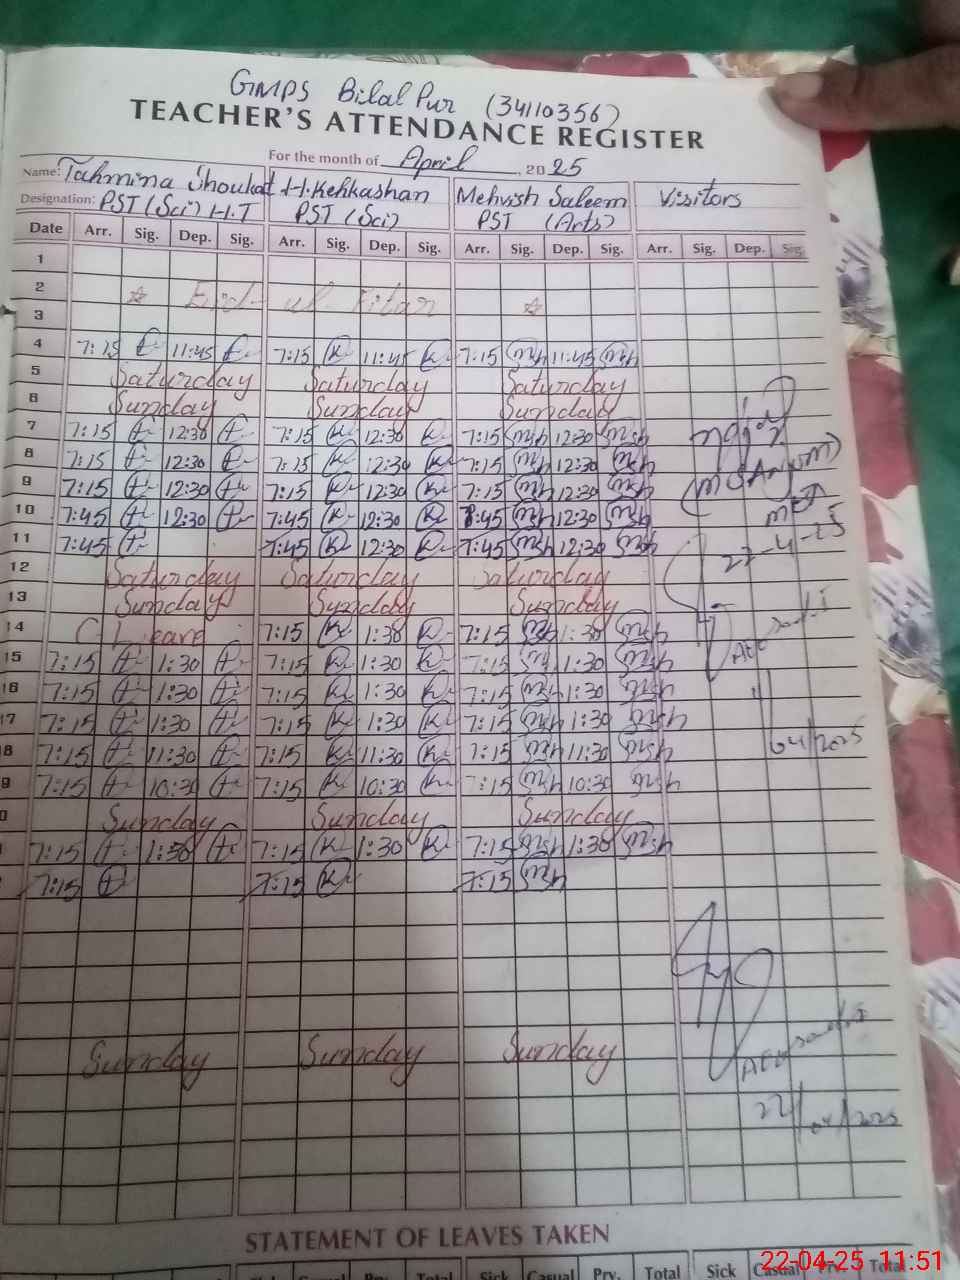 GMPS Bilal Pur (34110356)
TEACHER'S ATTENDANCE REGISTER
For the month of April, 2025
Name: Tahmina Shoukat H.Kehkashan Mehvish Saleem Visitors
Designation: PST (Sci) H.T PST (Sci) PST (Arts)
Date Arr. Sig. Dep. Sig. Arr. Sig. Dep. Sig. Arr. Sig. Dep. Sig. Arr. Sig. Dep. Sig.
1
2 Eid-ul Fitar
3
4 7:15 t 11:45 t 7:15 K 11:45 K 7:15 Msh 11:45 Msh
5 Saturday Saturday Saturday
6 Sunday Sunday Sunday
7 7:15 t 12:30 t 7:15 K 12:30 K 7:15 Msh 12:30 Msh
8 7:15 t 12:30 t 7:15 K 12:30 K 7:15 Msh 12:30 Msh
9 7:15 t 12:30 t 7:15 K 12:30 K 7:15 Msh 12:30 Msh
10 7:45 t 12:30 t 7:45 K 12:30 K 7:45 Msh 12:30 Msh
11 7:45 t 7:45 K 12:30 K 7:45 Msh 12:30 Msh
22-4-25
12 Saturday Saturday Saturday
13 Sunday Sunday Sunday
14 C Leave 7:15 K 1:30 K 7:15 Msh 1:30 Msh
15 7:15 t 1:30 t 7:15 K 1:30 K 7:15 Msh 1:30 Msh
16 7:15 t 1:30 t 7:15 K 1:30 K 7:15 Msh 1:30 Msh
17 7:15 t 1:30 t 7:15 K 1:30 K 7:15 Msh 1:30 Msh
8 7:15 t 11:30 t 7:15 K 11:30 K 7:15 Msh 11:30 Msh
04/2025
9 7:15 t 10:30 t 7:15 K 10:30 K 7:15 Msh 10:30 Msh
0 Sunday Sunday Sunday
7:15 t 1:30 t 7:15 K 1:30 K 7:15 Msh 1:30 Msh
7:15 t 7:15 K 7:15 Msh
Sunday Sunday Sunday
22/04/2025
STATEMENT OF LEAVES TAKEN
Sick Casual Prv. Total Sick Casual Prv. Total Sick Casual Prv. Total
22-04-25 11:51